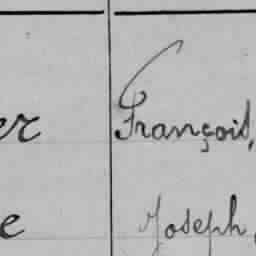 er François,
e Joseph,